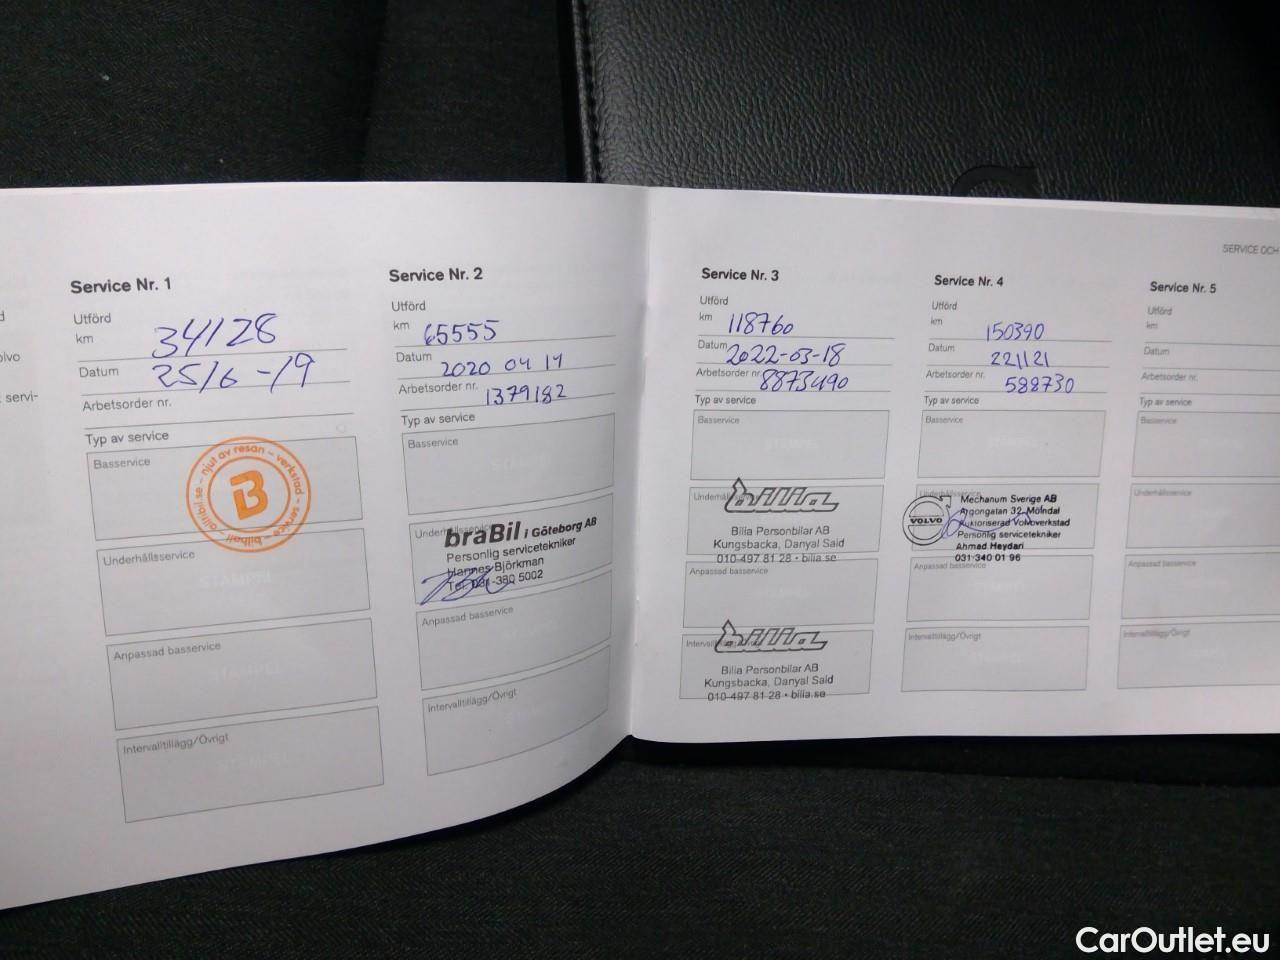 SERVICE OCH
olvo
servi-
Service Nr. 1
Utförd
km 34128
Datum 25/6-19
Arbetsorder nr.
Typ av service
Basservice
allribil.se – njut av resan – verkstad – service – bilhall
B
Underhållsservice
STÄMPEL
Anpassad basservice
STÄMPEL
Intervalltillägg/Övrigt
STÄMPEL
Service Nr. 2
Utförd
km 65555
Datum 2020 04 14
Arbetsorder nr. 1379182
Typ av service
Basservice
STÄMPEL
Underhållsservice
braBil i Göteborg AB
Personlig servicetekniker
Hannes Björkman
Tel. 031-380 5002
Anpassad basservice
Intervalltillägg/Övrigt
Service Nr. 3
Utförd
km 118760
Datum 2022-03-18
Arbetsorder nr. 8873490
Typ av service
Basservice
Underhållsservice
bilia
Bilia Personbilar AB
Kungsbacka, Danyal Said
010-497 81 28 • bilia.se
Anpassad basservice
Intervalltillägg/Övrigt
bilia
Bilia Personbilar AB
Kungsbacka, Danyal Said
010-497 81 28 • bilia.se
Service Nr. 4
Utförd
km 150390
Datum 221121
Arbetsorder nr. 588730
Typ av service
Basservice
Underhållsservice
VOLVO
Mechanum Sverige AB
Argongatan 32 Mölndal
Auktoriserad Volvoverkstad
Personlig servicetekniker
Ahmad Heydari
031-340 01 96
Anpassad basservice
Intervalltillägg/Övrigt
Service Nr. 5
Utförd
km
Datum
Arbetsorder nr.
Typ av service
Basservice
Underhållsservice
Anpassad basservice
Intervalltillägg/Övrigt
CarOutlet.eu